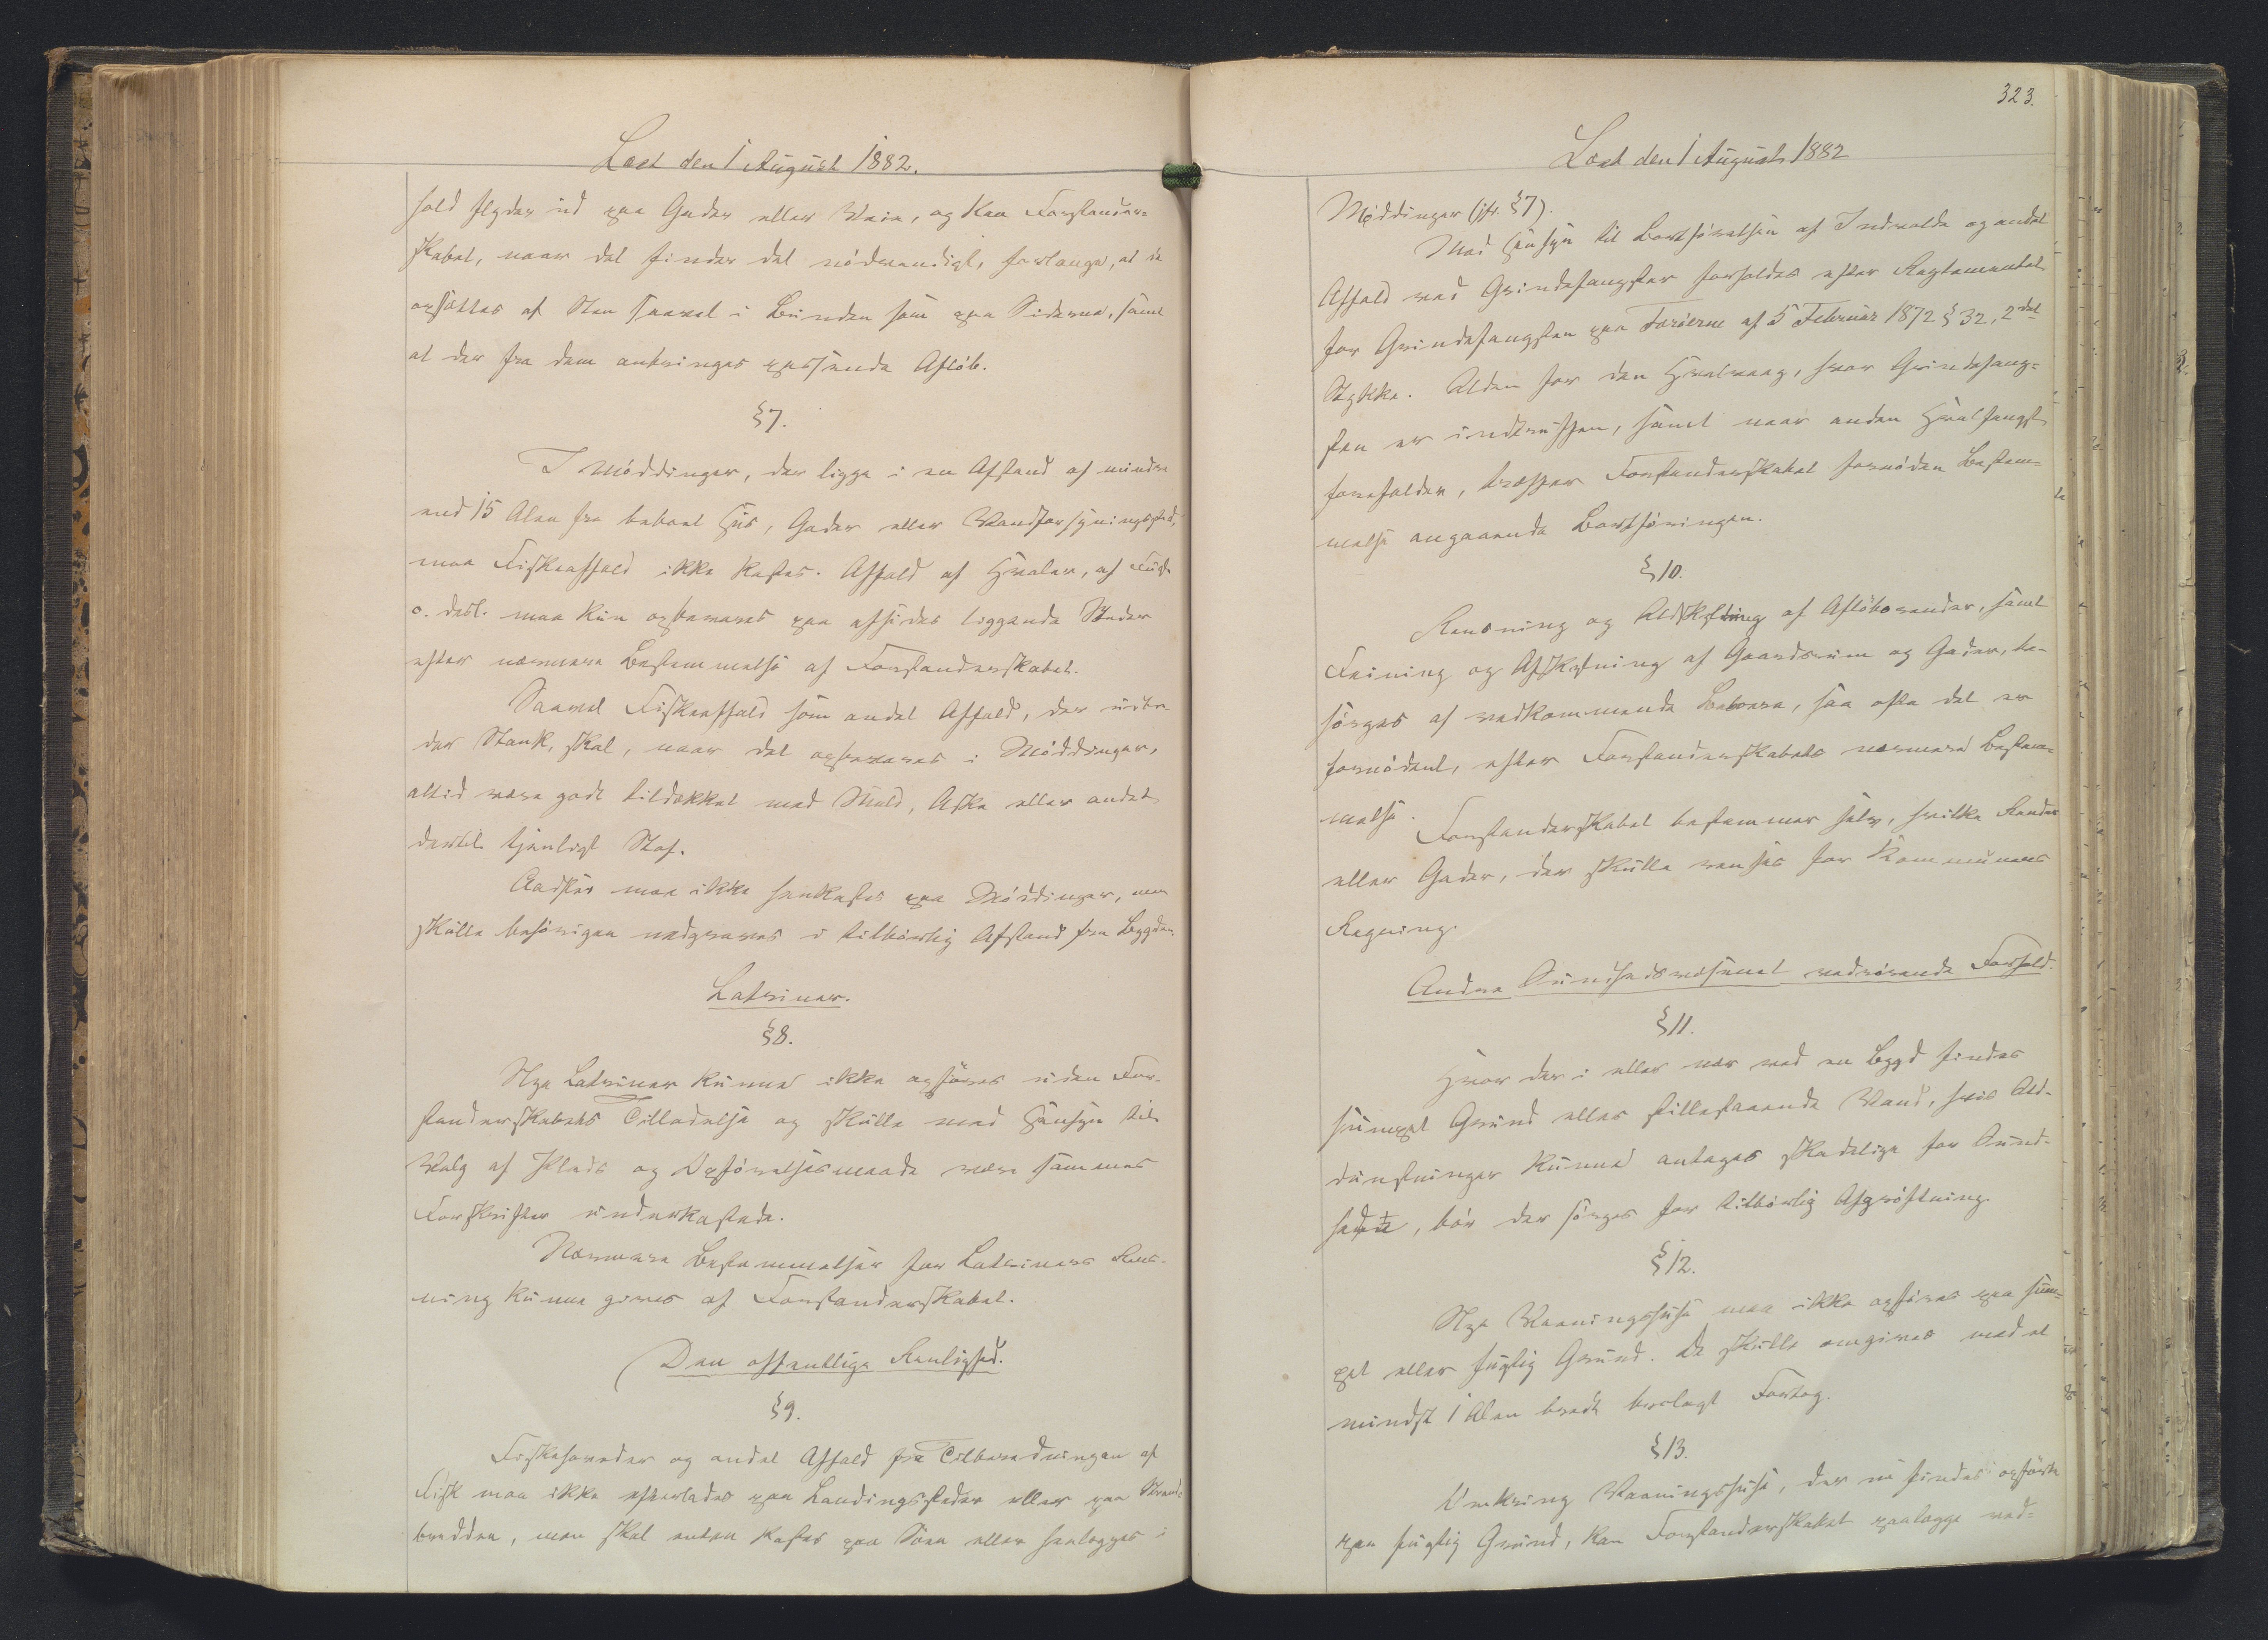 Læst den 1 August 1882.
hold flyder ud paa Gader eller Veie, og kan Forstander=
skabet, naar det finder det nödvendigt, forlange, at de
opsættes af Sten saavel i Bunden som paa Siderne, samt
at der fra dem anbringes passende Aflöb.
§7.
I Möddinger, der ligge i en Afstand af mindre
end 15 Alen fra beboet Hus, Gader eller Vandforsyningssted,
maa Fiskeaffald ikke kastes. Affald af Hvaler, af Fugle
o. desl. maa kun opbevares paa afsides liggende Steder
efter nærmere Bestemmelse af Forstanderskabet.
Saavel Fiskeaffald som andet Affald, der udbre-
der Stank, skal, naar det opbevares i Möddinger,
altid være godt tildækket med Muld, Aske eller andet
dertil tjenligt Stof.
Aadsler maa ikke henkastes paa Möddinger, men
skulle behörigen nedgraves i tilbörlig Afstand fra Bygden.
Latriner.
§8.
Nye Latriner kunne ikke opföres uden For-
standerskabets Tilladelse og skulle med Hensyn til
Valg af Plads og Opförelsesmaade være sammes
Forskrifter underkastede.
Nærmere Bestemmelser for Latriners Rens-
ning kunne gives af Forstanderskabet.
Den offentlige Renlighed.
§9.
Fiskehoveder og andet Affald fra Tilberedningen af
Fisk maa ikke efterlades paa Landingssteder eller paa Strand-
bredden, men skal enten kastes paa Söen eller henlægges i
323.
Læst den 1 August 1882
Möddinger (jfr. §7).
Med Hensyn til Bortförelsen af Indvolde og andet
Affald ved Grindefangster forholdes efter Reglementet
for Grindefangsten paa Færöerne af 5 Februar 1872 § 32, 2det
Stykke. Alden for den Hvalvaag, hvor Grindefang=
sten er indtruffen, samt naar anden Hvalfangst
forefalder, træffer Forstanderskabet fornöden Bestem=
melse angaaende Bortföringen.
§10.
Rensning og Udskylning af Aflöbsrender, samt
Feining og Afskylning af Gaardsrum og Gader, be-
sörges af vedkommende Beboere, saa ofte det er
fornödent, efter Forstanderskabets nærmere Bestem=
melse.
Forstanderskabet bestemmer selv, hvilke Render
eller Gader, der skulle renses for Kommunens
Regning.
Andre Sundhedsvæsenet vedrörende Forhold.
§11.
Hvor der i eller nær ved en Bygd findes
sumpet Grund eller stillestaaende Vand, hvis Ud-
dunstninger kunne antages skadelige for Sund-
heden, bör der sörges for tilbörlig Afgröftning.
§12.
Nye Vaaningshuse maa ikke opföres paa sum=
pet eller fugtig Grund. De skulle omgives med et
mindst 1 Alen bredt brolagt Fortog.
§13.
Omkring Vaaningshuse, der nu findes opförte
paa fugtig Grund, kan Forstanderskabet paalægge ved=